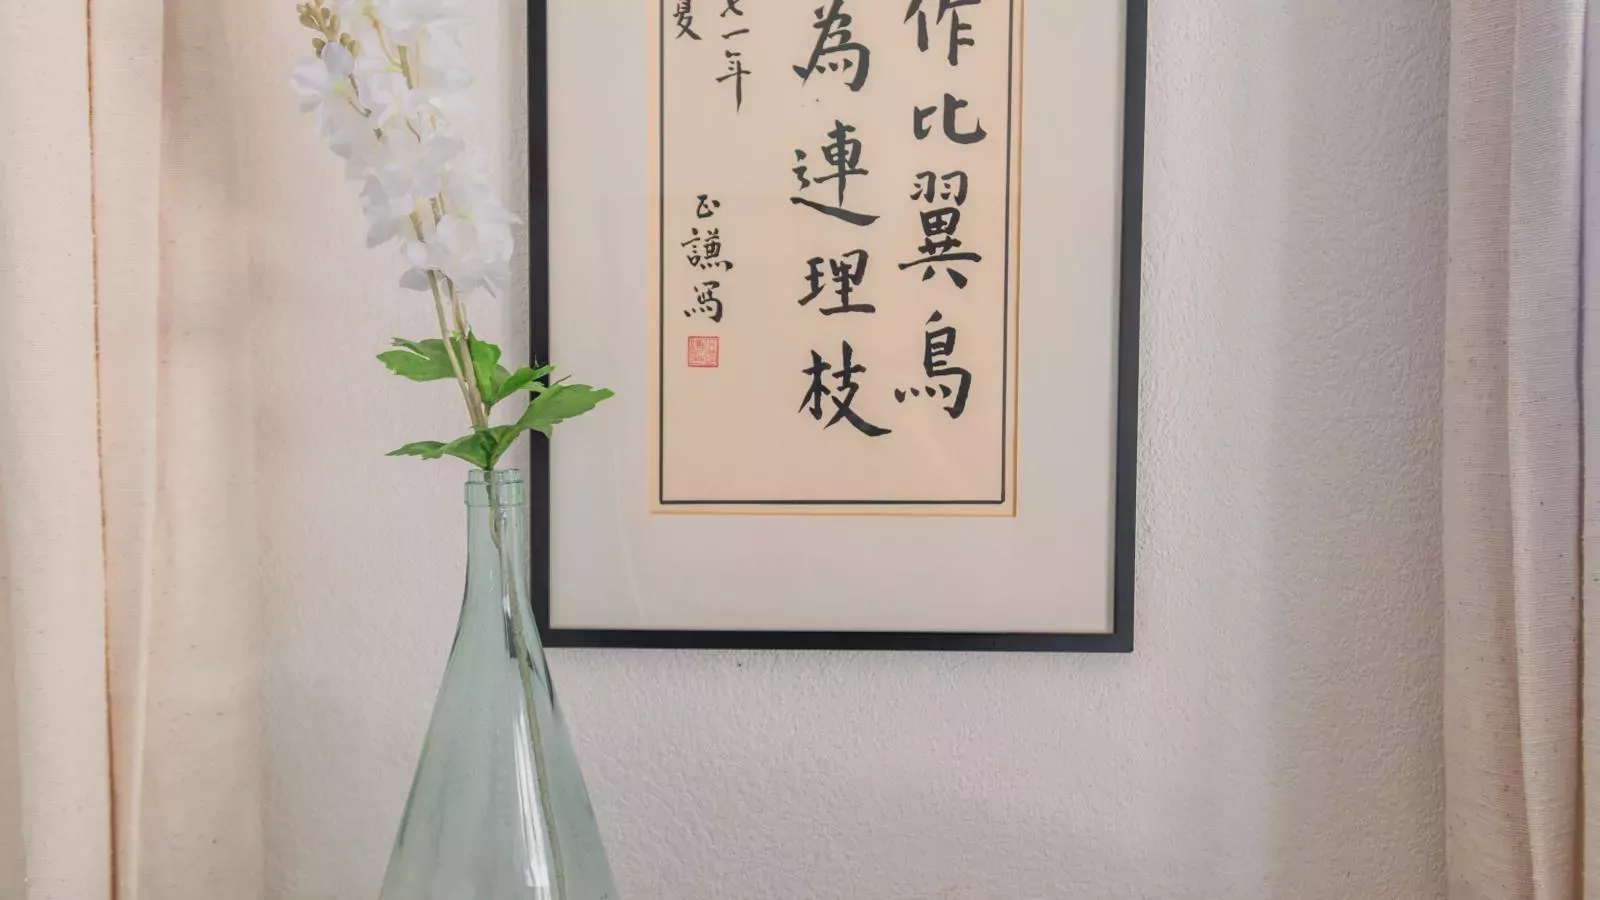 作比翼鳥
為連理枝
七一年
夏
正謙寫